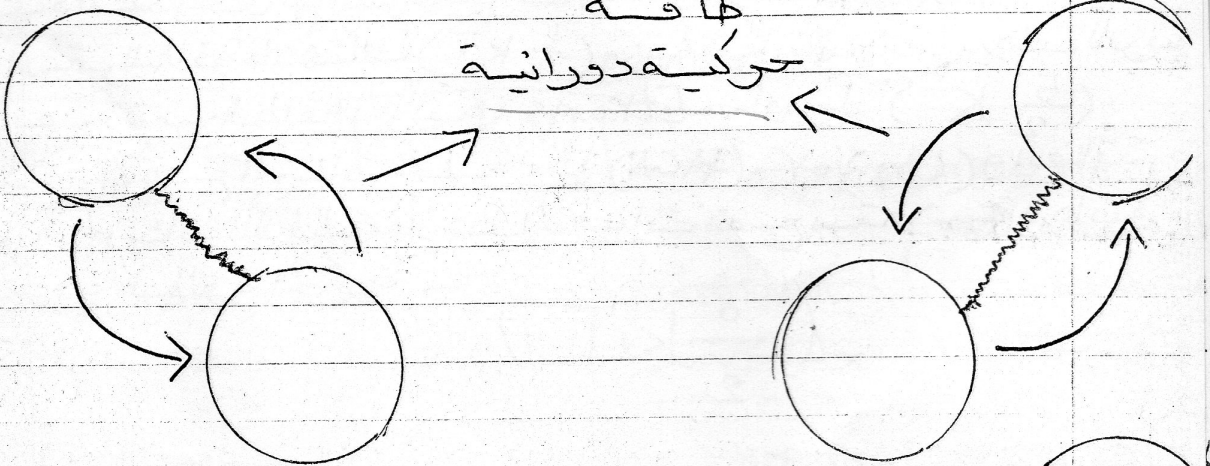 طاقة
حركية دورانية